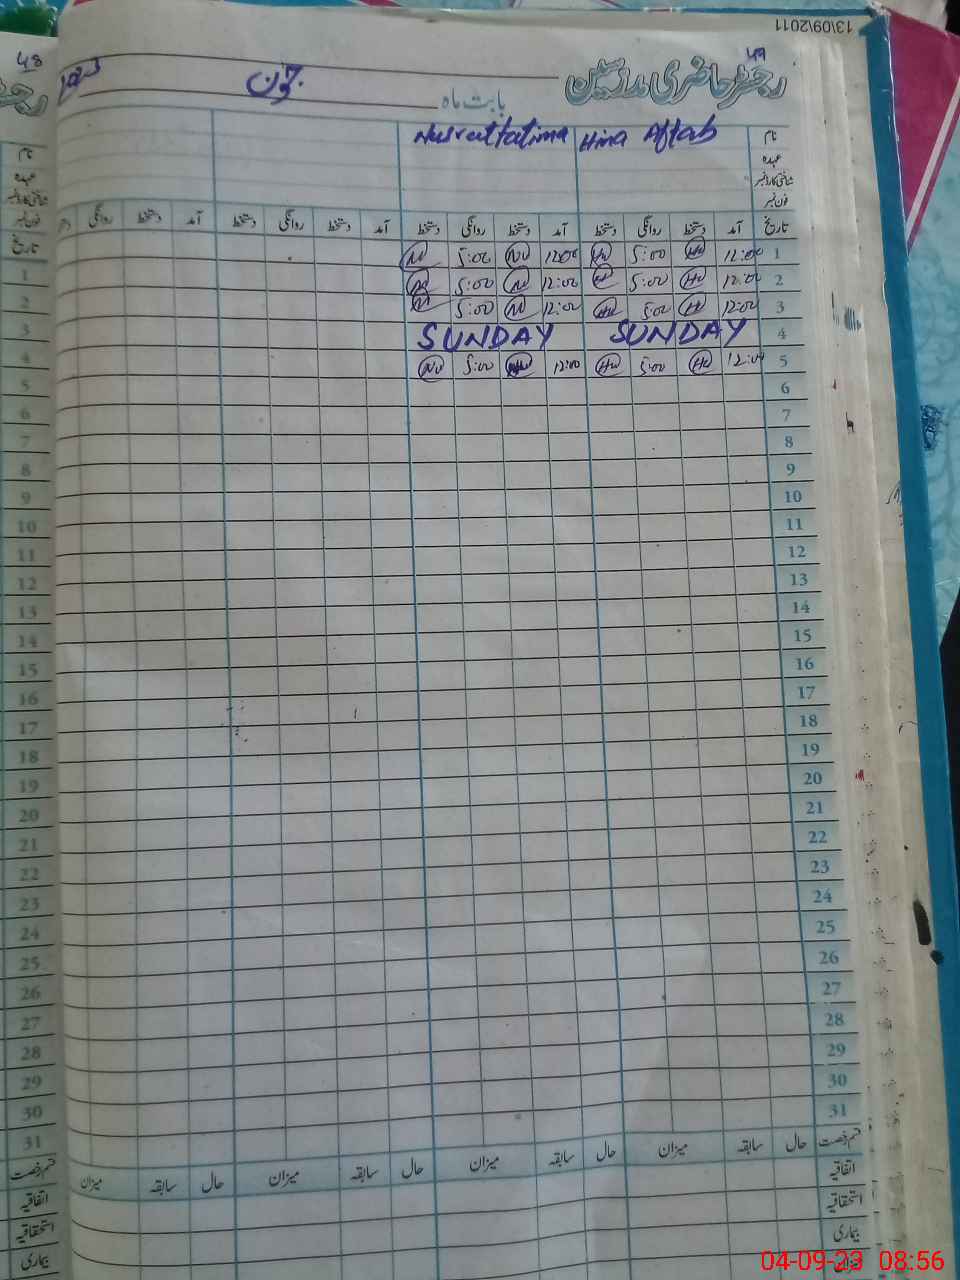 13\09\2011
48 49
رجسٹر حاضری مدرسین
بابت ماہ جون
نام Hina Aftab Nusrat Fatima
عہدہ
شناختی کارڈ نمبر
فون نمبر
تاریخ آمد دستخط روانگی دستخط آمد دستخط روانگی دستخط آمد دستخط روانگی دستخط آمد دستخط روانگی
1 12:00 5:00 12:00 5:00
2 12:00 5:00 12:00 5:00
3 12:00 5:00 12:00 5:00
4 SUNDAY SUNDAY
5 12:00 5:00 12:00 5:00
6
7
8
9
10
11
12
13
14
15
16
17
18
19
20
21
22
23
24
25
26
27
28
29
30
31
قسم رخصت حال سابقہ میزان حال سابقہ میزان حال سابقہ میزان حال سابقہ میزان
اتفاقیہ
استحقاقیہ
بیماری
میزان
نام
عہدہ
شناختی کارڈ نمبر
فون نمبر
تاریخ
1
2
3
4
5
6
7
8
9
10
11
12
13
14
15
16
17
18
19
20
21
22
23
24
25
26
27
28
29
30
31
قسم رخصت
اتفاقیہ
استحقاقیہ
بیماری
04-09-23 08:56